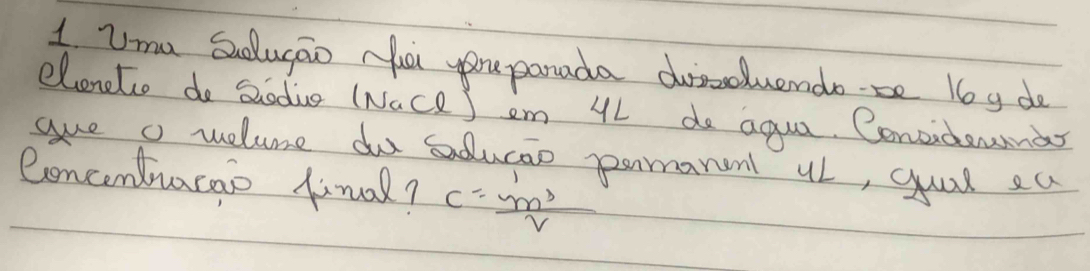 1. Uma Solução foi preparada dissoluendo-se 16g de
Cloreto de Sódio (NaCl) em 4L de água. Considerando
que o volume da Solução permanent 4L, qual e a
Concentração final? C = m³/V